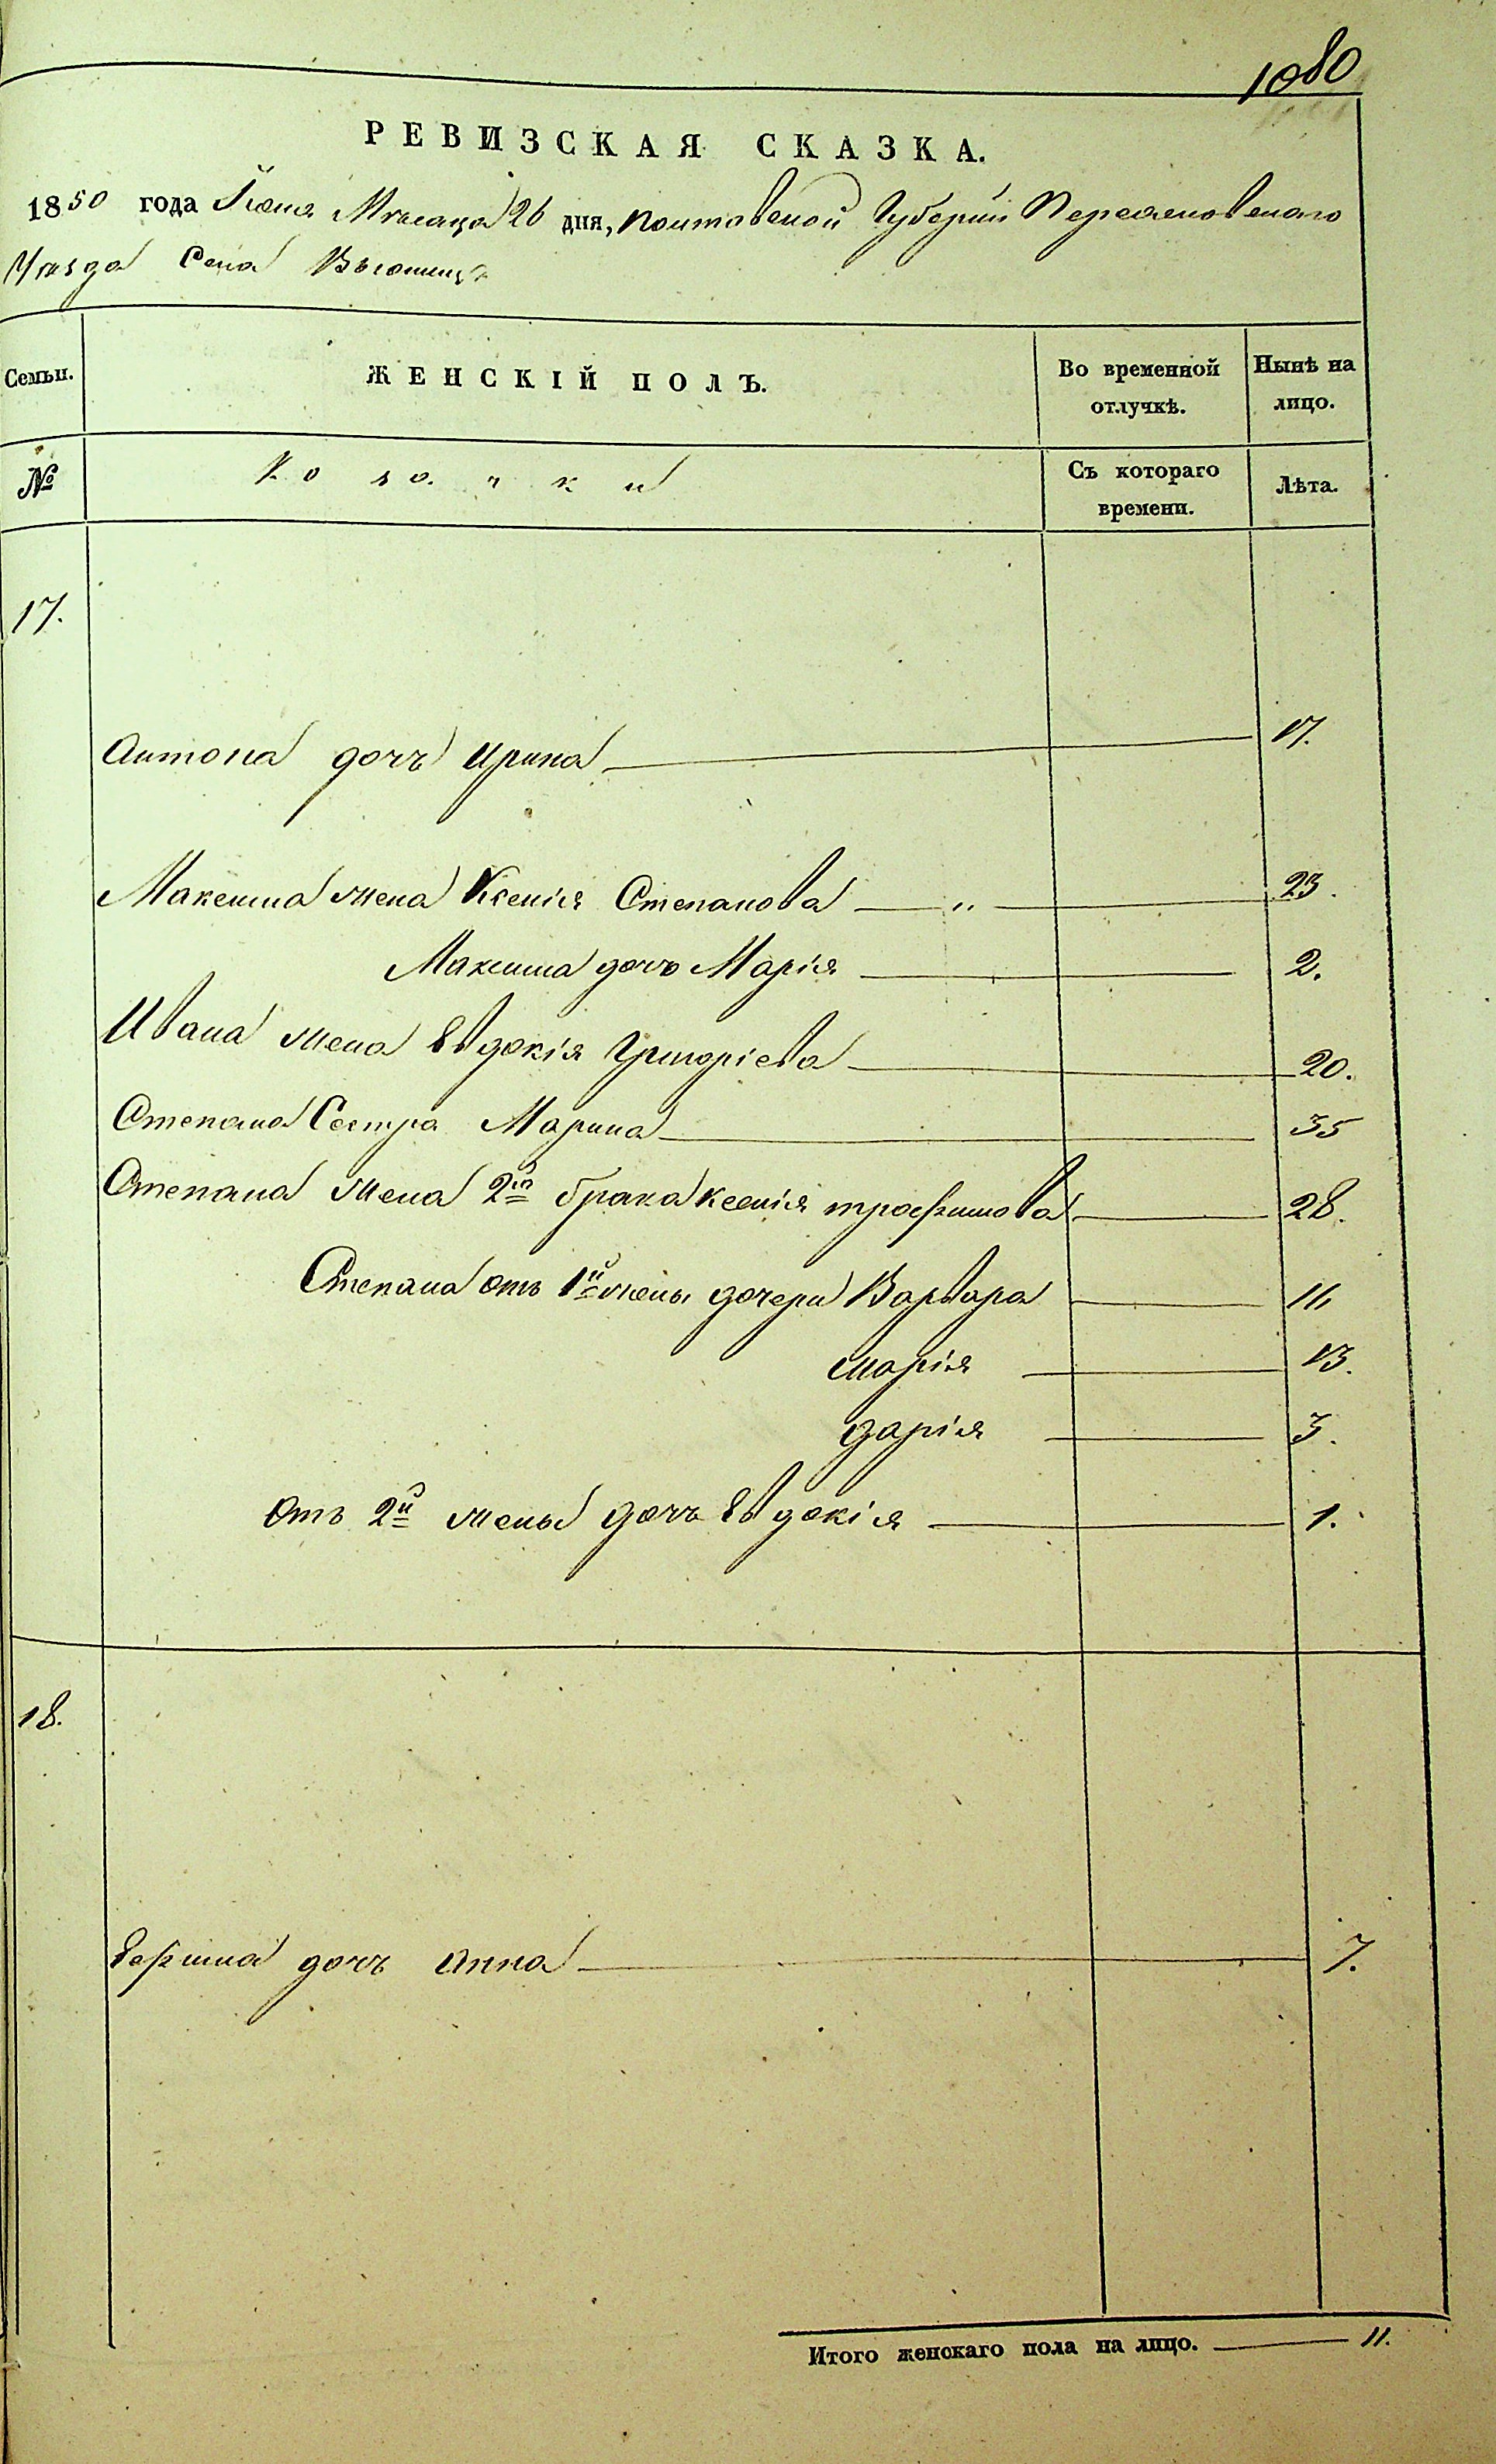 1080
РЕВИЗСКАЯ СКАЗКА.
1850 года Іюня Мѣсяца 26 дня, Полтавской Губерніи Переяславского
Уѣзда Села
Семьи.
ЖЕНСКІЙ ПОЛЪ.
Во временной отлучкѣ.
Нынѣ на лицо.
№
Козачки
Съ котораго времени.
Лѣта.
17.
Антона дочь Ирина 17.
Максима жена Ксенія Степанова " 23.
Максима дочь Марія 2.
Ивана жена Евдокія Григоріева 20.
Степана Сестра Марина 35
Степана жена 2го брака Ксенія трофимова 28.
Степана отъ 1й жены дочери Варвара 11.
марія 13.
дарія 3.
отъ 2й жены дочь Евдокія 1.
18.
Ефима дочь Анна 7.
Итого женскаго пола на лицо. 11.